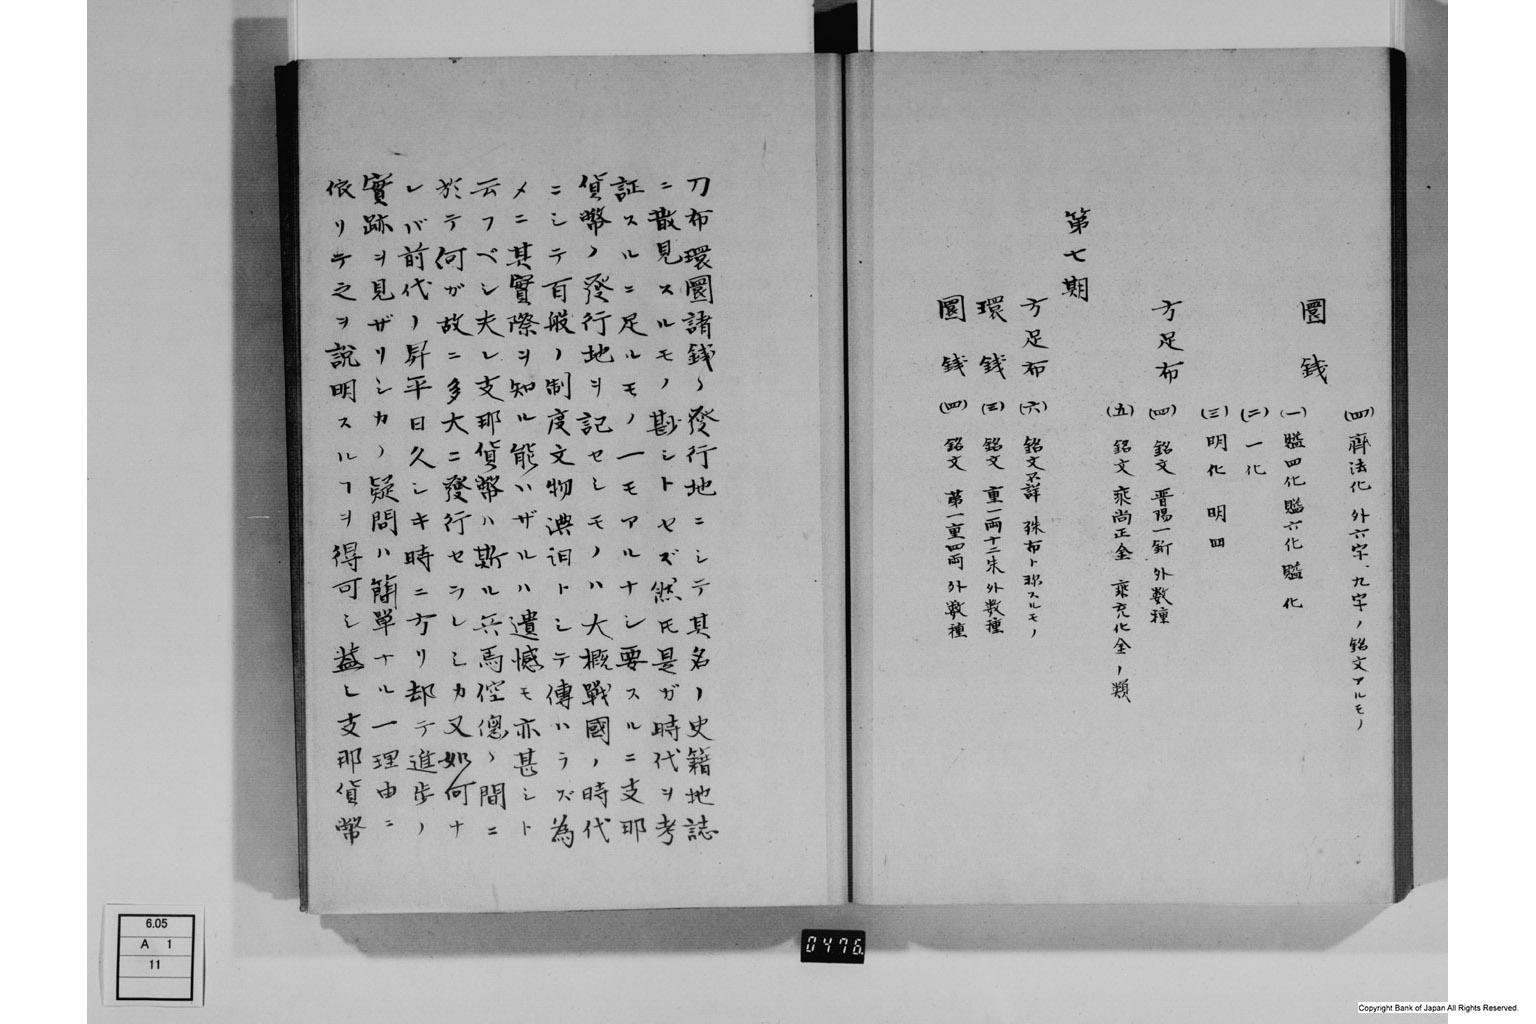 (四) 齊法化 外六字、九字ノ銘文アルモノ
圜錢
(一) 賹四化 賹六化 賹化
(二) 一化
(三) 明化 明四
方足布 (四) 銘文 晋陽一釿 外数種
(五) 銘文 乘尚正金 乘充化金ノ類
第七期
方足布 (六) 銘文不詳 殊布ト称スルモノ
環錢 (三) 銘文 重一両十二朱 外数種
圜錢 (四) 銘文 第一重四両 外数種
刀布環圜諸錢ハ發行地ニシテ其名ノ史籍地誌
ニ散見スルモノ尠シトセズ然氏是ガ時代ヲ考
証スルニ足ルモノ一モアルナシ要スルニ支那
貨幣ノ發行地ヲ記セシモノハ大概戰國ノ時代
ニシテ百般ノ制度文物湮汩トシテ傳ハラズ為
メニ其實際ヲ知ル能ハザルハ遺憾モ亦甚シト
云フベシ夫レ支那貨幣ハ斯ル兵馬倥偬ノ間ニ
於テ何ガ故ニ多大ニ發行セラレシカ又如何ナ
レバ前代ノ昇平日久シキ時ニ方リ却テ進歩ノ
實跡ヲ見ザリシカノ疑問ハ簡單ナル一理由ニ
依リテ之ヲ説明スルヿヲ得可シ蓋シ支那貨幣
6.05
A 1
11
0476
Copyright Bank of Japan All Rights Reserved.